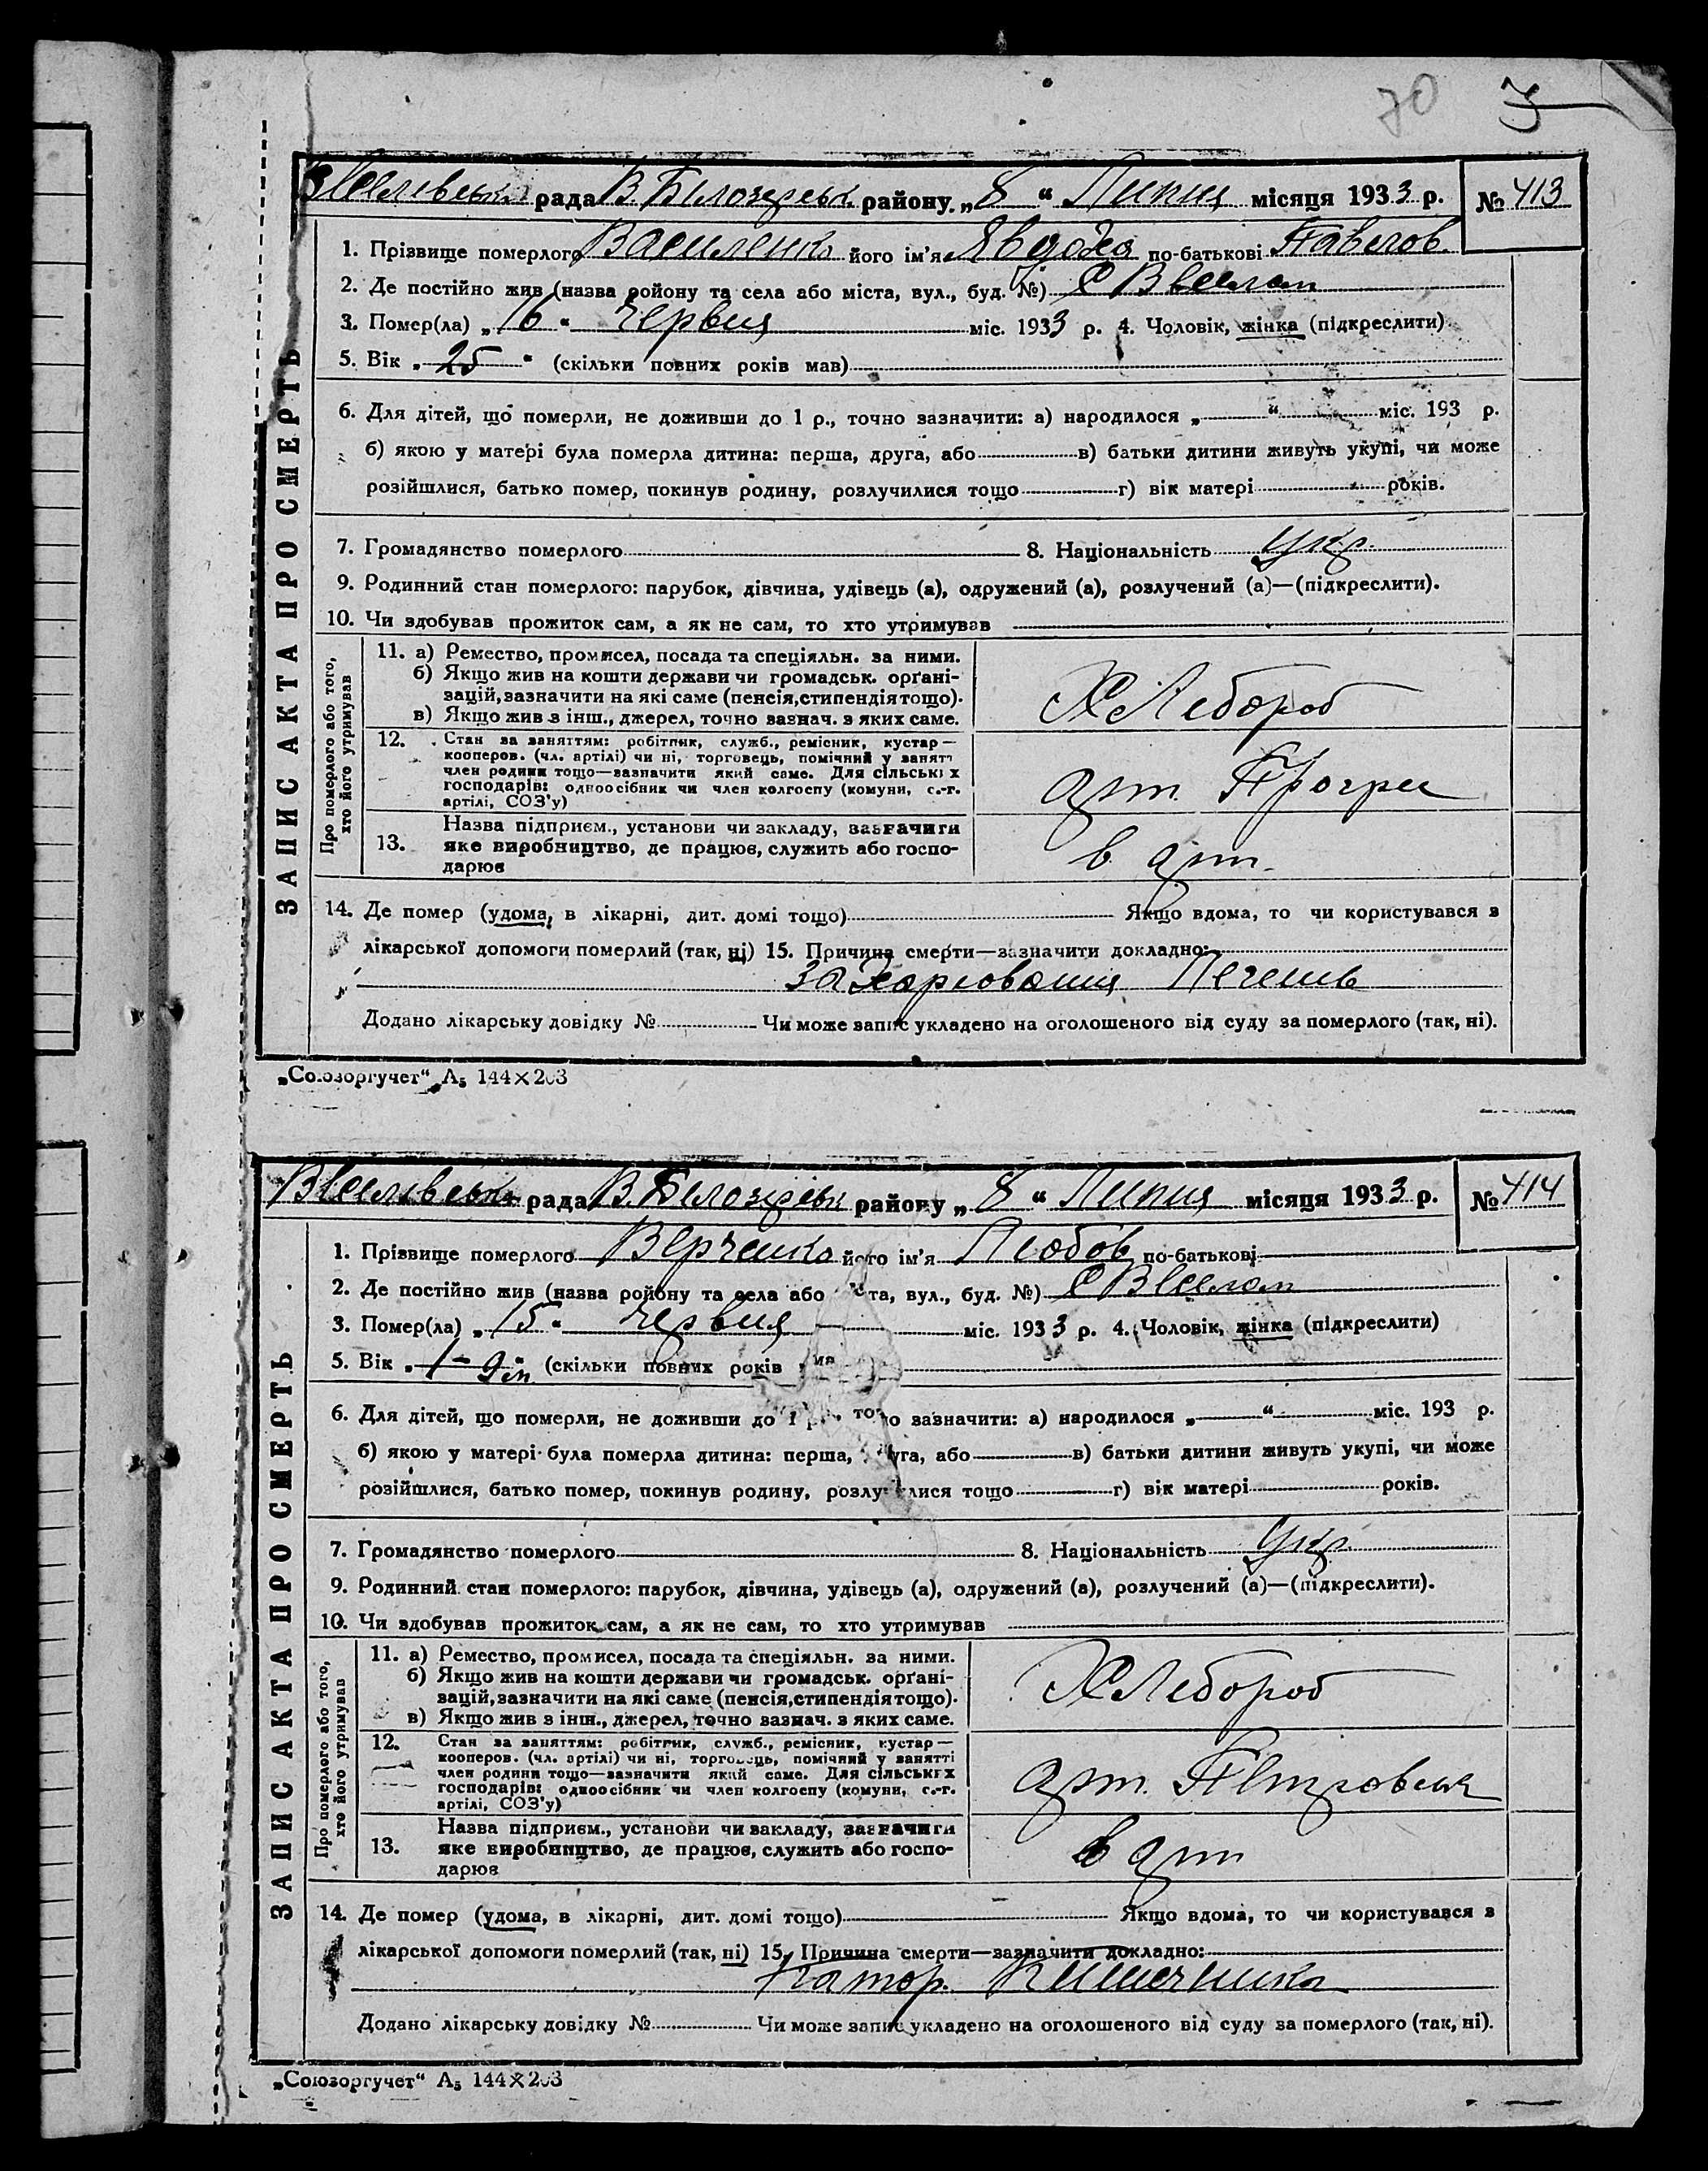 70
Веселівська рада В. Білозірськ району „ 8 “ Липня місяця 1933 р. № 413
1. Прізвище померлого Василенко його ім'я Явдоха по-батькові Павлов.
2. Де постійно жив (назва ройону та села або міста, вул., буд. №) С Веселом
3. Помер(ла) „ 16 “ Червня міс. 1933 р. 4. Чоловік, жінка (підкреслити)
5. Вік „ 25 “ (скільки повних років мав)
6. Для дітей, що померли, не доживши до 1 р., точно зазначити: а) народилося „ “ міс. 193 р.
б) якою у матері була померла дитина: перша, друга, або в) батьки дитини живуть укупі, чи може
розійшлися, батько помер, покинув родину, розлучилися тощо г) вік матері років.
7. Громадянство померлого 8. Національність Укр.
9. Родинний стан померлого: парубок, дівчина, удівець (а), одружений (а), розлучений (а)—(підкреслити).
10. Чи здобував прожиток сам, а як не сам, то хто утримував
ЗАПИС АКТА ПРО СМЕРТЬ
Про померлого або того,
хто його утримував
11. а) Ремество, промисел, посада та спеціяльн. за ними.
б) Якщо жив на кошти держави чи громадськ. орґані-
зацій, зазначити на які саме (пенсія, стипендія тощо).
в) Якщо жив з інш., джерел, точно зазнач. з яких саме.
Хлебороб
12. Стан за заняттям: робітник, служб., ремісник, кустар—
кооперов. (чл. артілі) чи ні, торговець, помічний у занятт
член родини тощо—зазначити який саме. Для сільських
господарів: одноосібник чи член колгоспу (комуни, с.-г.
артілі, СОЗ'у)
арт. Прогрес
13. Назва підприєм., установи чи закладу, зазначити
яке виробництво, де працює, служить або госпо-
дарює
в арт.
14. Де помер (удома, в лікарні, дит. домі тощо) Якщо вдома, то чи користувався з
лікарської допомоги померлий (так, ні) 15. Причина смерти—зазначити докладно:
Печень
Додано лікарську довідку № Чи може запис укладено на оголошеного від суду за померлого (так, ні).
„Союзоргучет“ А₅ 144×203
Веселівська рада В. Білозірськ району „ 8 “ Липня місяця 1933 р. № 414
1. Прізвище померлого Верченко його ім'я Любов по-батькові
2. Де постійно жив (назва ройону та села або міста, вул., буд. №) С Веселом
3. Помер(ла) „ 15 “ Червня міс. 1933 р. 4. Чоловік, жінка (підкреслити)
5. Вік „ 1-9 м “ (скільки повних років мав
6. Для дітей, що померли, не доживши до 1 р., точно зазначити: а) народилося „ “ міс. 193 р.
б) якою у матері була померла дитина: перша, друга, або в) батьки дитини живуть укупі, чи може
розійшлися, батько помер, покинув родину, розлучилися тощо г) вік матері років.
7. Громадянство померлого 8. Національність Укр.
9. Родинний стан померлого: парубок, дівчина, удівець (а), одружений (а), розлучений (а)—(підкреслити).
10. Чи здобував прожиток сам, а як не сам, то хто утримував
ЗАПИС АКТА ПРО СМЕРТЬ
Про померлого або того,
хто його утримував
11. а) Ремество, промисел, посада та спеціяльн. за ними.
б) Якщо жив на кошти держави чи громадськ. орґані-
зацій, зазначити на які саме (пенсія, стипендія тощо).
в) Якщо жив з інш., джерел, точно зазнач. з яких саме.
Хлебороб
12. Стан за заняттям: робітник, служб., ремісник, кустар—
кооперов. (чл. артілі) чи ні, торговець, помічний у занятті
член родини тощо—зазначити який саме. Для сільських
господарів: одноосібник чи член колгоспу (комуни, с.-г.
артілі, СОЗ'у)
арт. Петровськ
13. Назва підприєм., установи чи закладу, зазначити
яке виробництво, де працює, служить або госпо-
дарює
в арт
14. Де помер (удома, в лікарні, дит. домі тощо) Якщо вдома, то чи користувався з
лікарської допомоги померлий (так, ні) 15. Причина смерти—зазначити докладно:
Катор. Кишечника
Додано лікарську довідку № Чи може запис укладено на оголошеного від суду за померлого (так, ні).
„Союзоргучет“ А₅ 144×203